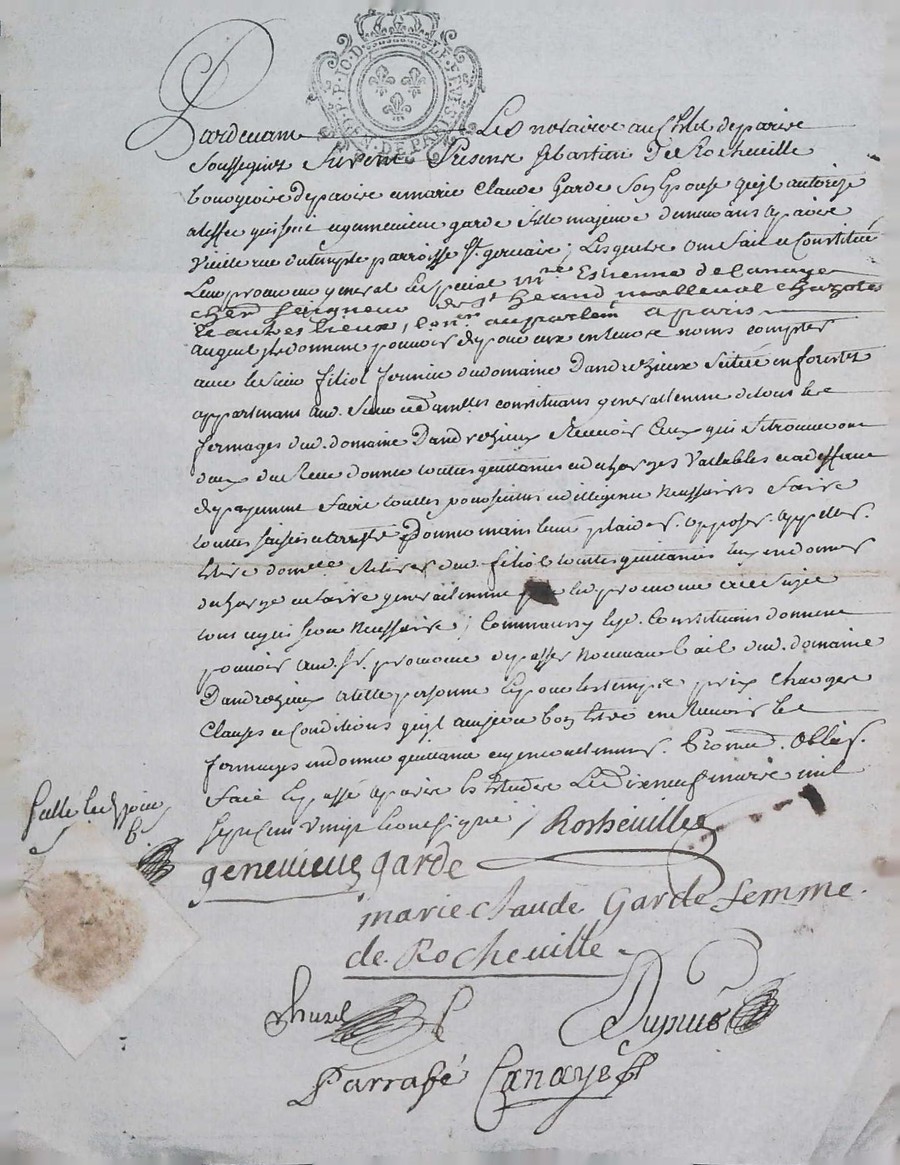 GEN. DE PARIS
Pardevant Les notaires au Ch.let de paris
Soussignez furent Presens Sebastien De Rocheville
bourgeois de paris et marie Claude Garde Son Epouse qu'il autorise
a leffet qui suit et genevieve garde fille majeure demeurans a paris
vieille rue du temple parroisse St. gervais; Lesquels ont fait et Constitué
Leur procureur general et special Mre. Estienne de Canaye
cher. Seigneur de St heand malleval
et autres Lieux, Con.er au parlem.t a paris
auquel ils donnent pouvoir de pour eux en leurs noms compter
avec le sieur filiol fermier du domaine D'andrezieux scitué en forest
appartenant aud. Sieur et Damelles constituans generallement de tous les
fermages dud. domaine D'andrezieux Recevoir Ceux qui se trouveront
deus du Reste donner toutes quittances et decharges vallables et a deffaut
de payement faire touttes poursuittes et diligences necessaires faire
touttes saisies et arrests donner main levée plaider. opposer. appeller.
Elire domcile. Retirer dud. filiol toutes quittances luy en donner
decharge et faire generallement par led. procureur au sujet
tout ce qui sera necessaire; Comme aussy lesd. Constituans donnent
pouvoir aud. Sr. procureur de passer nouveau bail dud. domaine
D'andrezieux a telle personne et pour les temps prix Charges
Clauses et Conditions qu'il avisera bon Estre en Recevoir les
fermages en donner quittance et generallement. Promett. Oblig.
Fait et passé a paris Es Etudes Le Dix neuf mars mil
Sept Cent vingt et ont signé / Rocheville
Scellé led. jour
genevieve garde
marie claude Garde femme.
de Rocheville
Dupuis
Parrafé Canaye